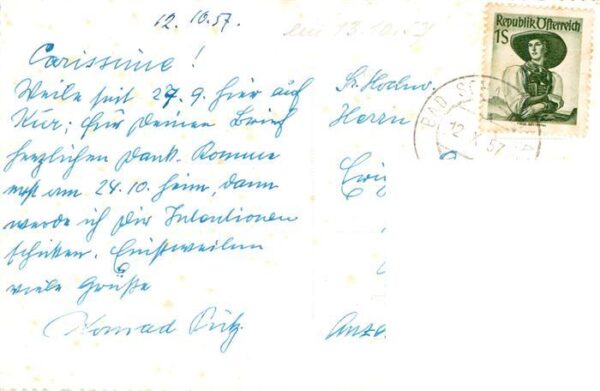 12. 10.57.
ein 13.10.57
Carissime!
Weile seit 27.9. hier auf
Kur; für Deinen Brief
herzlichen Dank. Komme
erst am 24.10. heim, dann
werde ich Dir Intentionen
schicken. Einstweilen
viele Grüße
Konrad
Republik Österreich
1S
BAD SCH
12.X.57
Sr. Hochw.
Herrn